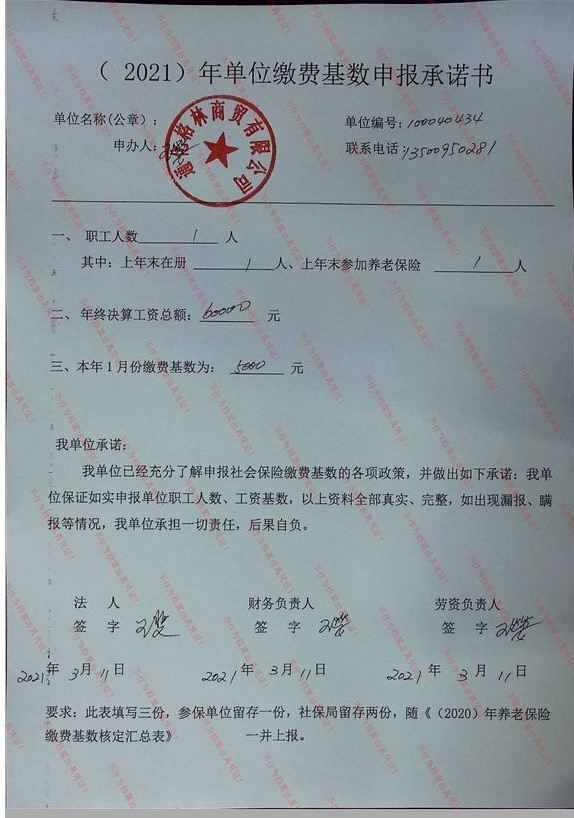 （ 2021）年单位缴费基数申报承诺书
单位名称(公章)：
单位编号：100040434
申办人：
联系电话：13500950281
格林商贸有限公司
一、 职工人数 1 人
其中：上年末在册 1 人、上年末参加养老保险 1 人
二、 年终决算工资总额： 60000 元
三、本年1月份缴费基数为： 5000 元
我单位承诺：
我单位已经充分了解申报社会保险缴费基数的各项政策，并做出如下承诺：我单
位保证如实申报单位职工人数、工资基数，以上资料全部真实、完整，如出现漏报、瞒
报等情况，我单位承担一切责任，后果自负。
法 人 财务负责人 劳资负责人
签 字 签 字 签 字
2021年 3月 11日 2021年 3月 11日 2021年 3月 11日
要求：此表填写三份，参保单位留存一份，社保局留存两份，随《（2020）年养老保险
缴费基数核定汇总表》 一并上报。